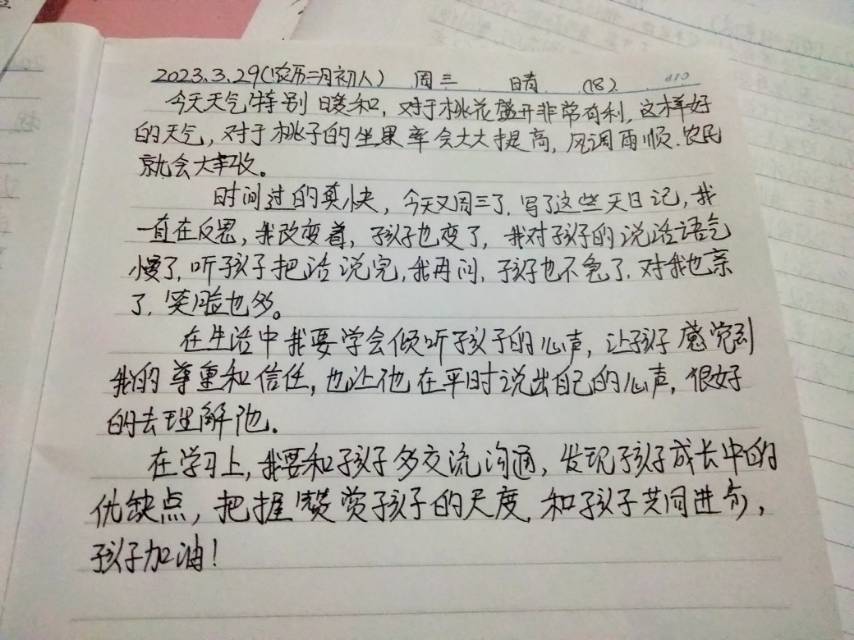 2023.3.29(农历二月初八) 周三 晴 (18)
今天天气特别暖和,对于桃花盛开非常有利,这样好
的天气,对于桃子的坐果率会大大提高,风调雨顺.农民
就会大丰收。
时间过的真快,今天又周三了,写了这些天日记,我
一直在反思,我改变着,孩子也变了,我对孩子的说话语气
慢了,听孩子把话说完,我再问,孩子也不急了,对我也亲
了,笑脸也多。
在生活中我要学会倾听孩子的心声,让孩子感觉到
我的尊重和信任,也让他在平时说出自己的心声,很好
的去理解他.
在学习上,我要和孩子多交流沟通,发现孩子成长中的
优缺点,把握赞赏孩子的尺度,和孩子共同进步,
孩子加油!